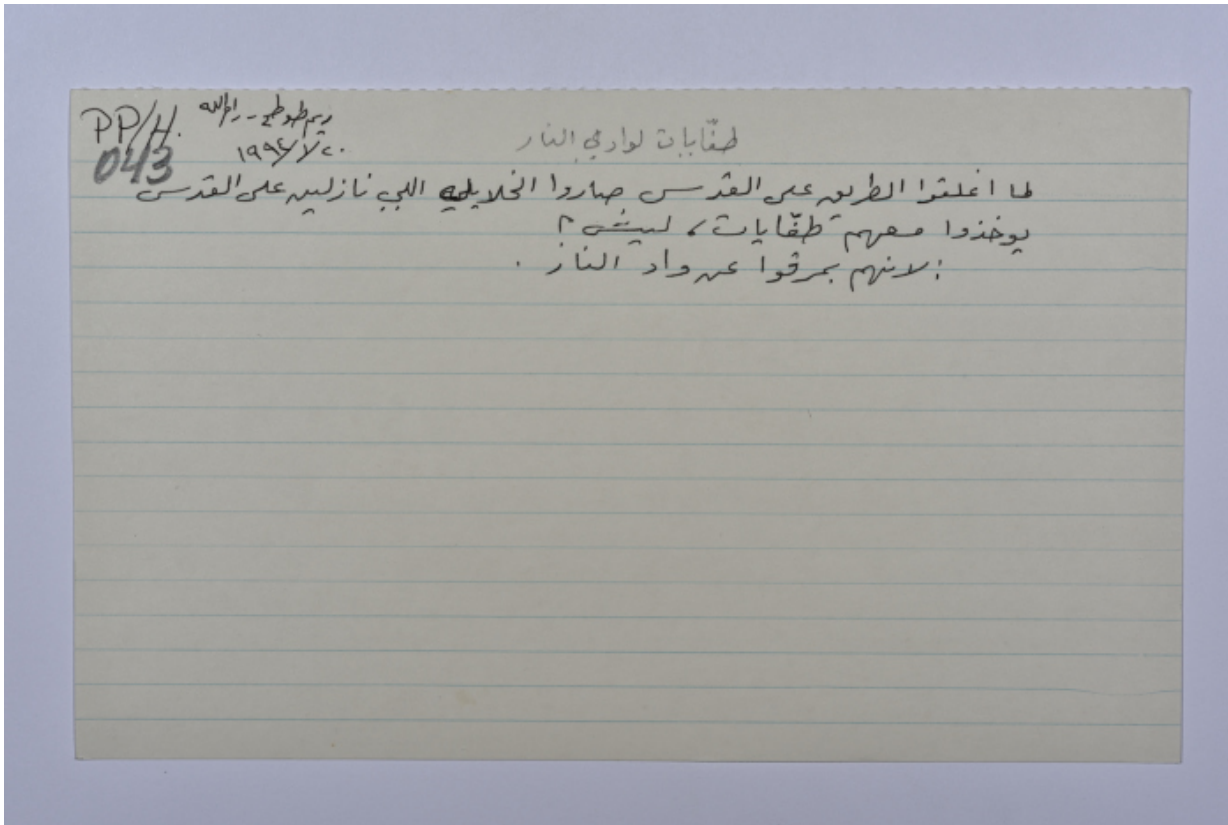 PP/H. ريم طوطح - رام الله
043 ٢٠/٧/١٩٩٤
طفّايات لوادي النار
لما اغلقوا الطريق على القدس صاروا الخلايلي اللي نازلين على القدس
يوخذوا معهم طفّايات، ليش؟
: لانهم بمرقوا عن واد النار .